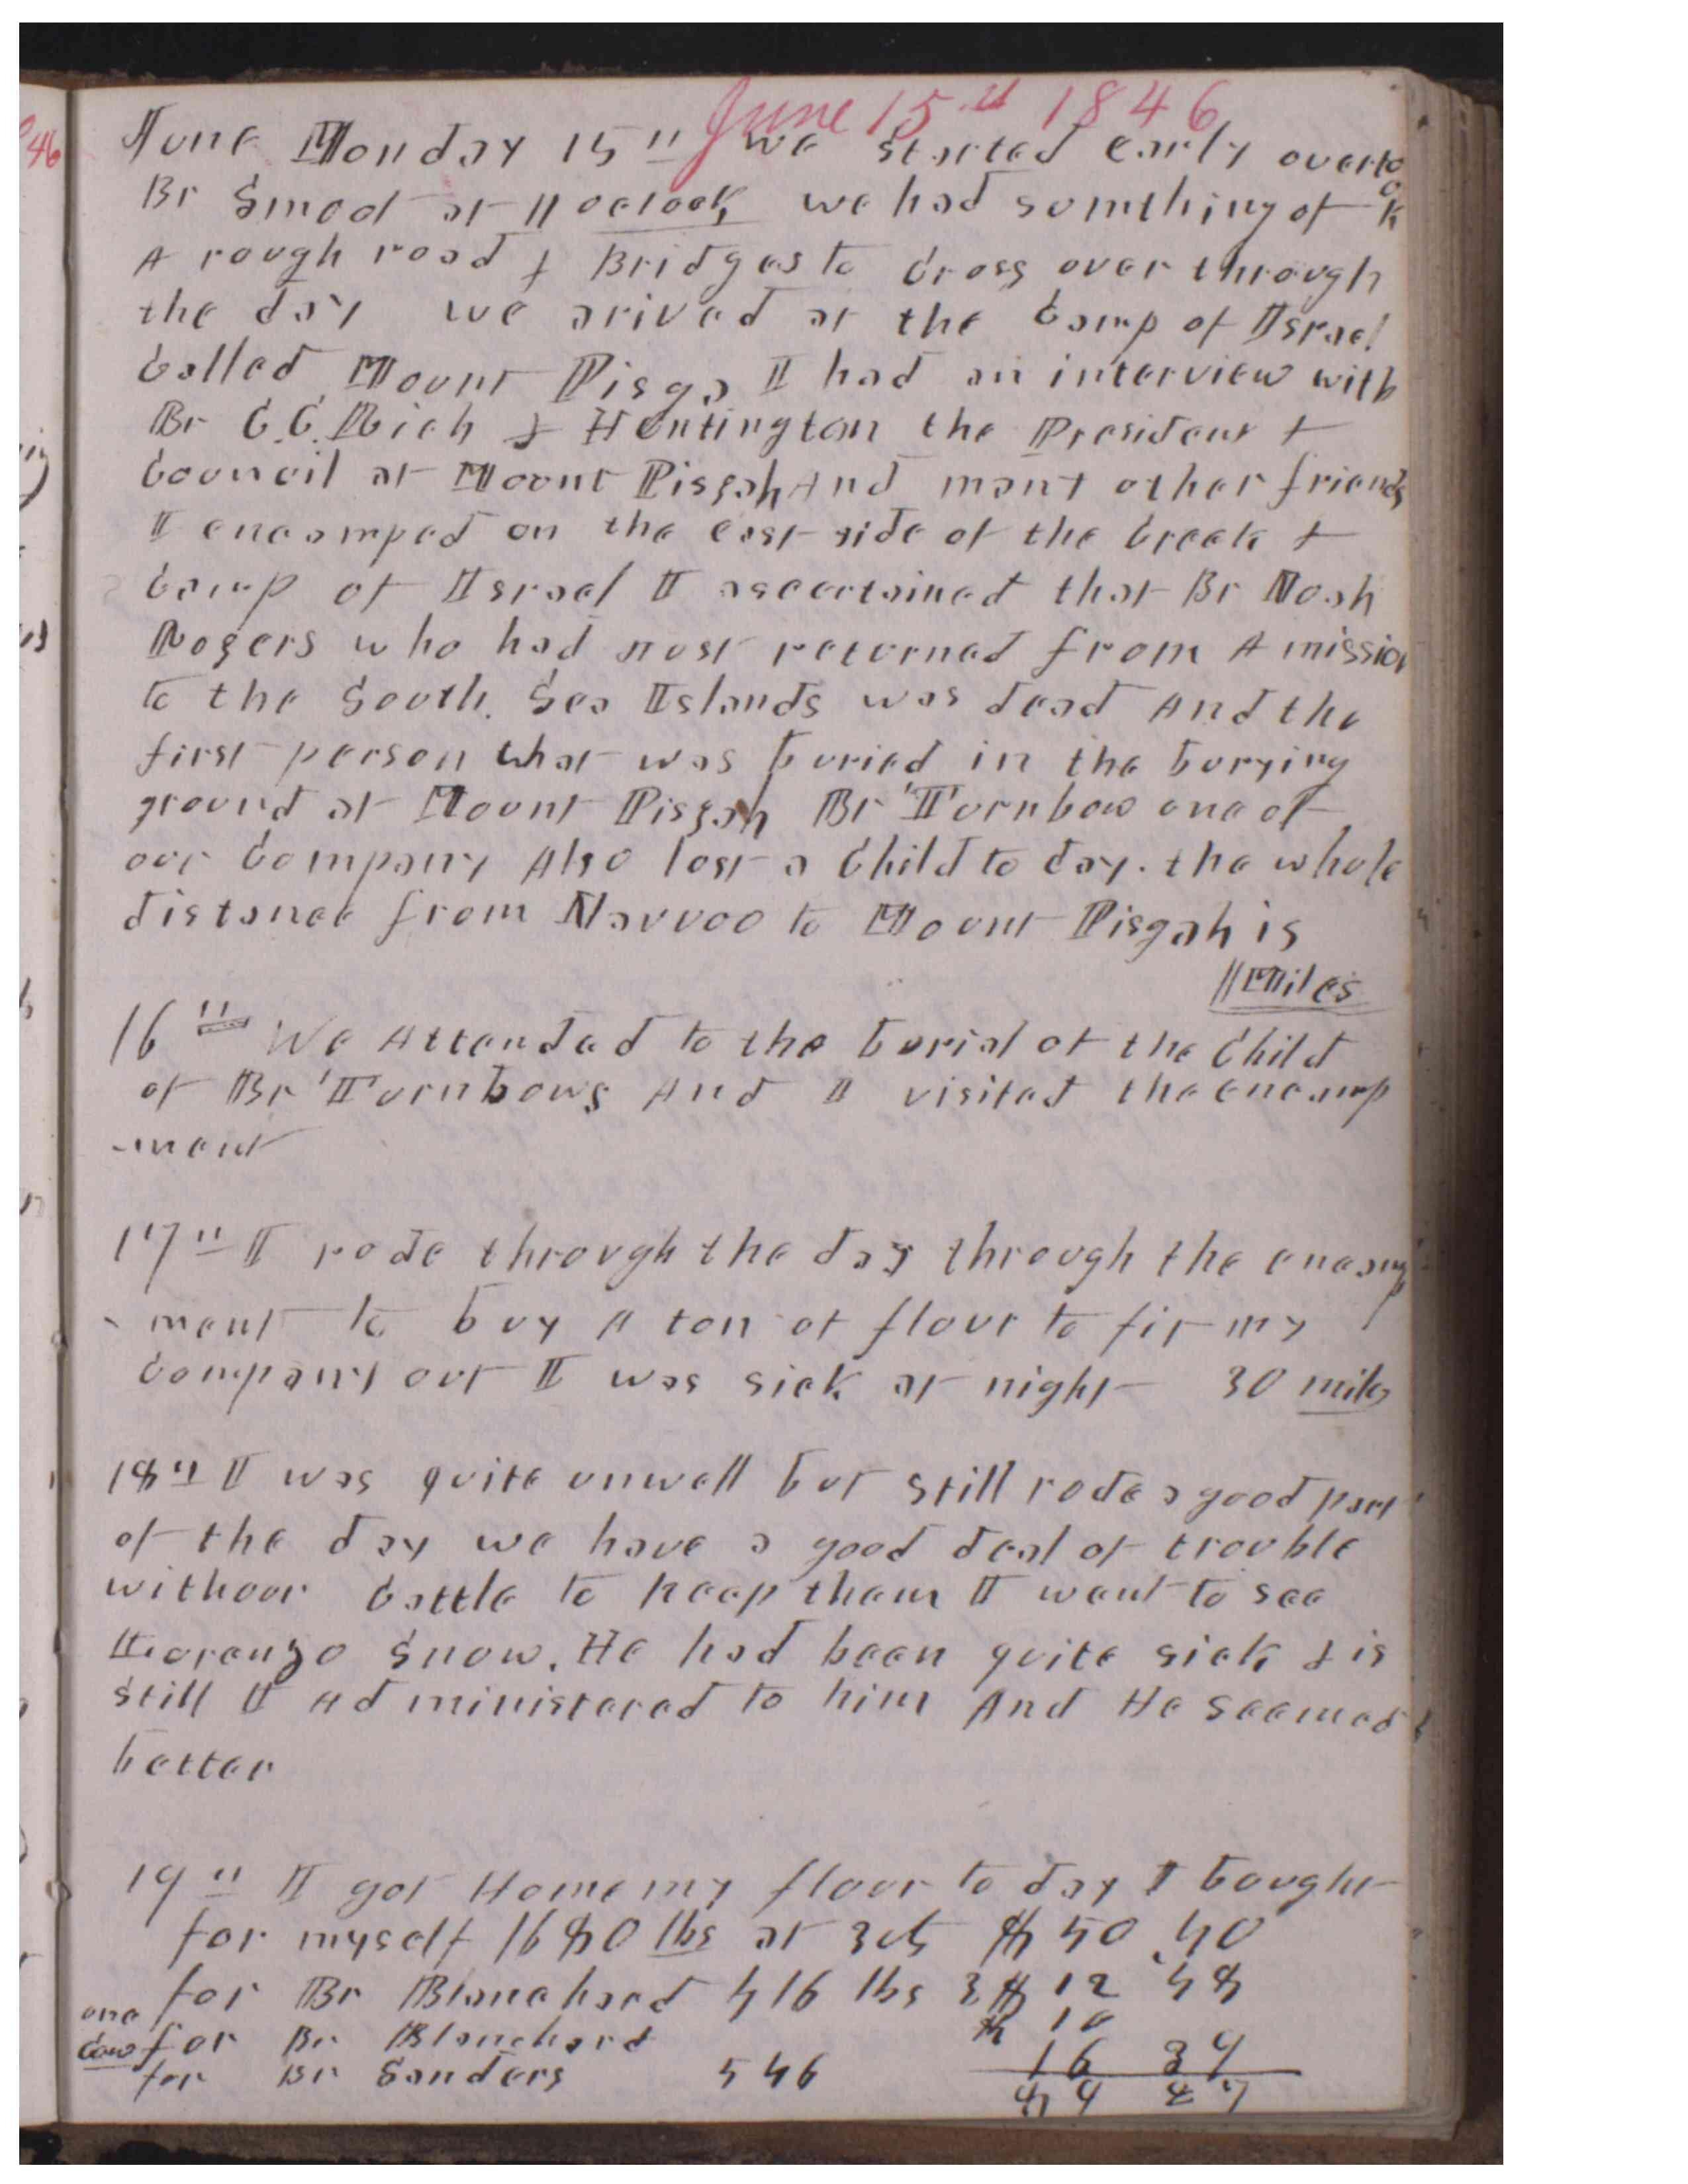 June 15th 1846
June Monday 15th we started early overtook
Br Smoot at 11 oclock we had sumthing of
A rough road & Bridges to Cross over through
the day we arived at the Camp of Israel
Called Mount Pisga I had an interview with
Br C. C. Rich & Huntington the President &
Council at Mount Pisgah And many other friends
I encamped on the east side of the Creek &
Camp of Israel I ascertained that Br Noah
Rogers who had Just returned from A mission
to the South Sea Islands was dead And the
first person that was buried in the burying
ground at Mount Pisgah Br Turnbow one of
our Company Also lost a Child to day. the whole
distance from Nauvoo to Mount Pisgah is
11 Miles
16th We Attended to the burial of the Child
of Br Turnbows And I visited the encamp
-ment
17th I rode through the day through the encamp
-ment to buy A ton of flour to fit my
Company out I was sick at night 30 miles
18th I was quite unwell but still rode a good part
of the day we have a good deal of trouble
with our Cattle to keep them I went to see
Lorenzo Snow. He had been quite sick & is
still I Administered to him And He seemed
better
19th I got Home my flour to day I bought
for myself 1680 lbs at 3cts $50.40
for Br Blanchard 416 lbs 3 $12 48
one Cow for Br Blanchard $10
for Br Sanders 546 16 34